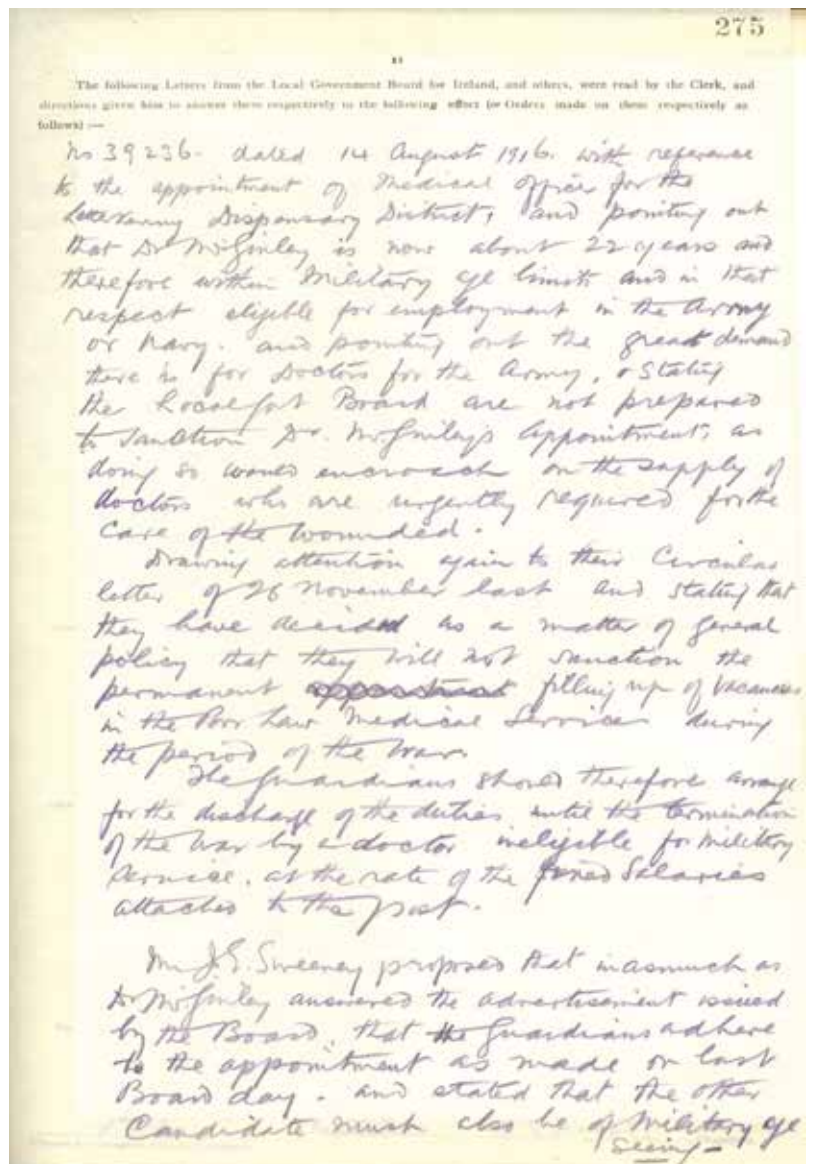 275
The following Letters from the Local Government Board for Ireland, and others, were read by the Clerk, and
directions given him to answer them respectively to the following effect (or Orders made on them respectively as
follows) :—
No 39236. dated 14 August 1916. with reference
to the appointment of Medical Officer for the
Letterkenny Dispensary District, and pointing out
that Dr McGinley is now about 22 years and
therefore within Military age limits and in that
respect eligible for employment in the Army
or Navy. and pointing out the great demand
there is for Doctors for the Army, & Stating
the Local Govt Board are not prepared
to Sanction Dr. McGinley's appointment, as
doing so would encroach on the supply of
doctors who are urgently required for the
Care of the Wounded.
Drawing attention again to their Circular
letter of 26 November last and stating that
they have decided as a matter of general
policy that they will not sanction the
permanent filling up of Vacancies
in the Poor Law Medical Services during
the period of the War.
The Guardians should therefore arrange
for the discharge of the duties until the termination
of the War by a doctor ineligible for Military
Service, at the rate of the fixed Salaries
attached to the post.
Mr J.E. Sweeney proposed that inasmuch as
Dr McGinley answered the advertisement issued
by the Board, that the Guardians adhere
to the appointment as made on last
Board day. and stated that the other
Candidate must also be of Military age
Seeing —